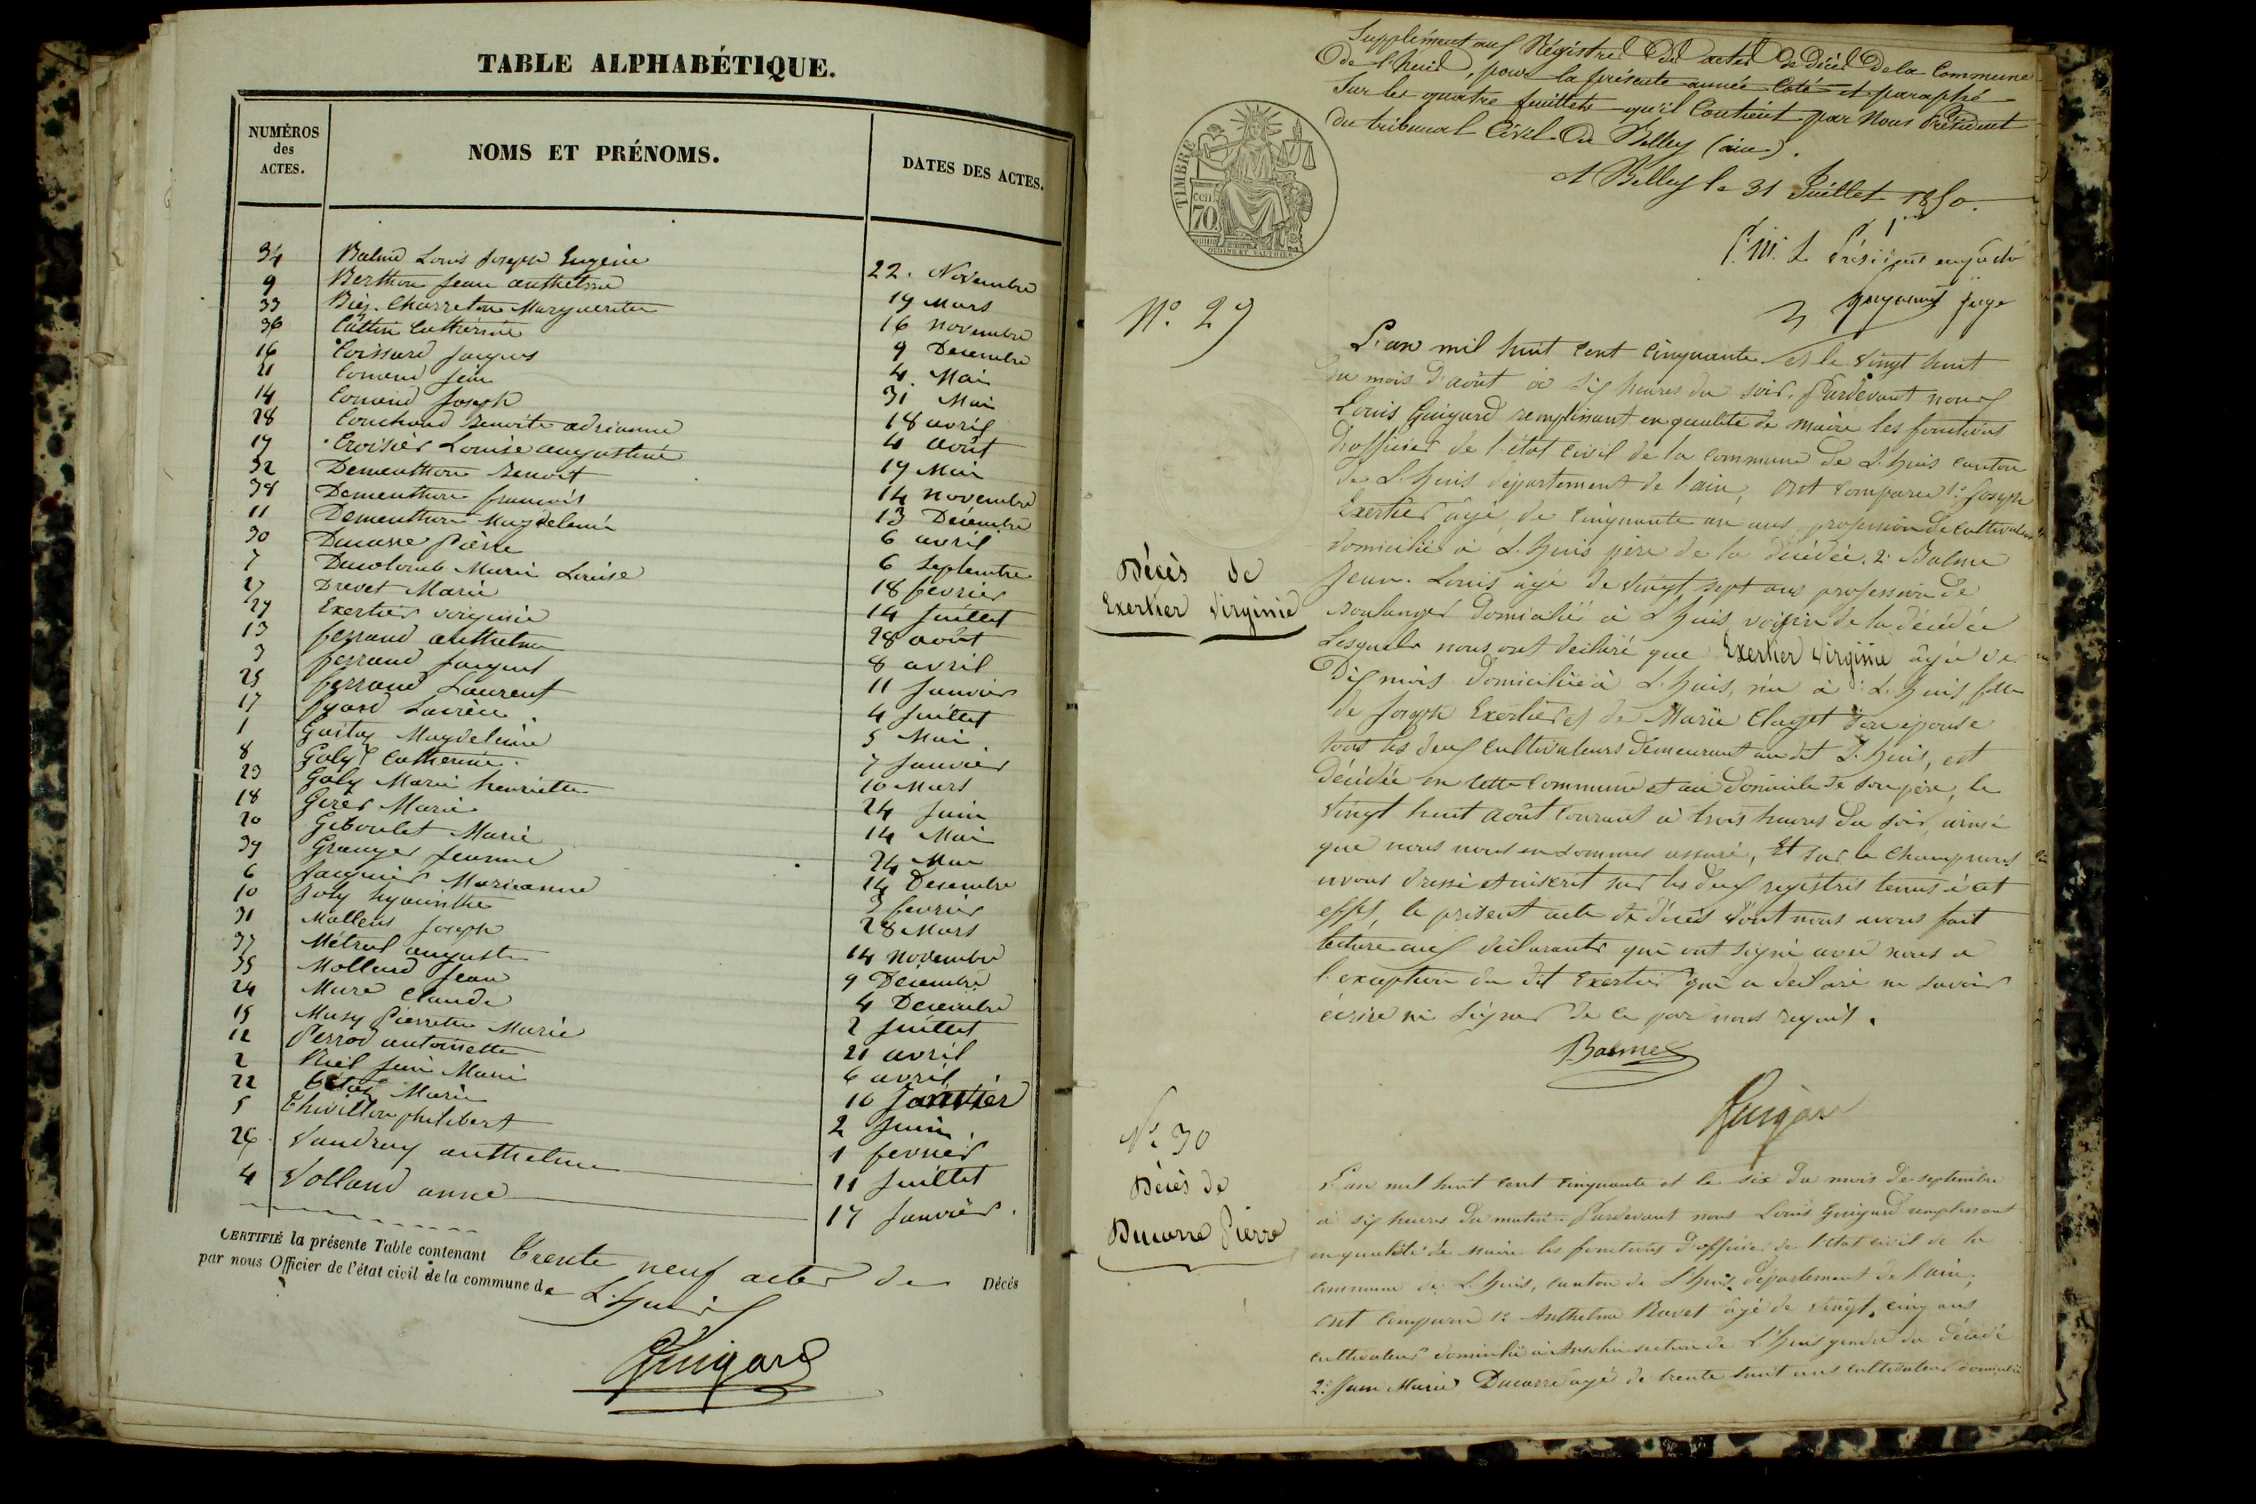 TABLE ALPHABÉTIQUE.
NUMÉROS
des
ACTES.
NOMS ET PRÉNOMS.
DATES DES ACTES.
34 Balme Louis Joseph Eugène 22. Novembre
9 Berthon Jean anthelme 19 Mars
33 Charreton Marguerite 16 novembre
36 Cattin Catherine 9 Decembre
16 Coissard Jacques 4. Mai
21 Comend Jean 31 Mai
14 Comend Joseph 18 avril
28 Couchoud Benoite adrienne 4 août
19 Croisier Louise augustine 19 Mai
32 Dementhon Benoit 14 novembre
38 Dementhon francois 13 Décembre
11 Dementhon Magdeleine 6 avril
30 Ducarre Pierre 6 Septembre
7 Ducolomb Marie Louise 18 fevrier
27 Drevet Marie 14 Juillet
29 Exertier virginie 28 août
13 ferrand anthelme 8 avril
3 ferrand Jacques 11 Janvier
25 ferrand Laurent 4 Juillet
17 5 Mai
1 Magdeleine 7 Janvier
8 Goly Catherine 10 Mars
23 Goly Marie henriette 24 Juin
18 Gires Marie 14 Mai
20 Giboulet Marie 24 Mai
39 Granger Jeanne 14 Decembre
6 Jacquier Marianne 3 fevrier
10 Joly hyacinthe 28 Mars
31 Mallens Joseph 14 novembre
37 Métral auguste 9 Décembre
35 Mollard Jean 4 Decembre
24 Mure Claude 2 Juillet
15 Musy Pierrette Marie 21 avril
12 Perrod antoinette 6 avril
2 Jean Marie 10 Janvier
22 Marie 2 Juin
5 Thivillon philibert 1 fevrier
26 Vaudray anthelme 11 Juillet
4 Volland anne 17 Janvier.
CERTIFIÉ la présente Table contenant Trente neuf actes de Décès
par nous Officier de l'état civil de la commune de L'huis
Guigard
Supplément aux Régistres des actes de décès de la Commune
de l'huis, pour la présente année Coté et paraphé
Sur les quatre feuillets qu'il Contient par Nous Président
du tribunal Civil de Belley (ain).
A Belley le 31 Juillet 1850.
Pr. Mr. Le Président empêché
Juge
TIMBRE
70
No. 29
Décès de
Exertier Virginie
L'an mil huit cent cinquante et le vingt huit
du mois d'août à six heures du soir. Pardevant nous
Louis Guigard remplissant en qualité de maire les fonctions
d'officier de l'état civil de la commune de L'huis canton
de L'huis département de l'ain, ont comparu 1o. Joseph
Exertier âgé de cinquante un ans profession de cultivateur
domicilié à L'huis père de la décédée. 2o Balme
Jean Louis âgé de vingt sept ans profession de
boulanger domicilié à L'huis voisin de la décédée
Lesquels nous ont déclaré que Exertier Virginie âgée de
Dix mois domiciliée à L'huis, née à L'huis, fille
de Joseph Exertier et de Marie Claget son épouse
tous les deux cultivateurs demeurant au dit L'huis, est
décédée en cette commune et au domicile de son père, le
vingt huit août courant à trois heures du soir, ainsi
que nous nous en sommes assuré, Et sur le champ nous
avons dressé et inscrit sur les deux registres tenus à cet
effet, le présent acte de décès dont nous avons fait
lecture aux déclarants qui ont signé avec nous a
l'exception du dit Exertier qui a déclaré ne savoir
écrire ni signer de ce par nous requit.
Balme
Guigard
No. 30
Décès de
Ducarre Pierre
L'an mil huit cent cinquante et le six du mois de septembre
à six heures du matin. Pardevant nous Louis Guigard remplissant
en qualité de maire les fonctions d'officier de l'état civil de la
commune de L'huis, canton de L'huis département de l'ain,
ont comparu 1o. Anthelme Ravet âgé de vingt cinq ans
cultivateur domicilié à section de L'huis gendre du décédé
2o. Jean Marie Ducarre âgé de trente huit ans cultivateur domicilié